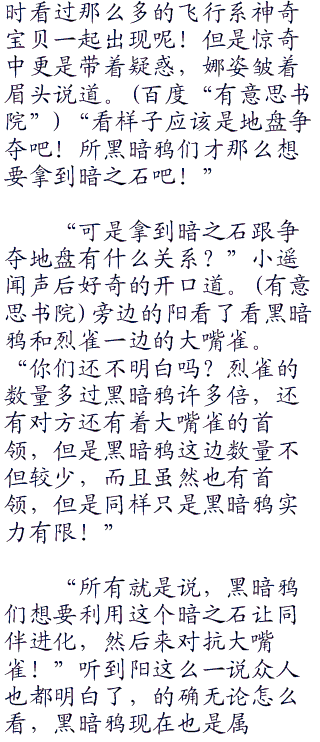 时看过那么多的飞行系神奇
宝贝一起出现呢！但是惊奇
中更是带着疑惑，娜姿皱着
眉头说道。(百度“有意思书
院”) “看样子应该是地盘争
夺吧！所黑暗鸦们才那么想
要拿到暗之石吧！”
“可是拿到暗之石跟争
夺地盘有什么关系？”小遥
闻声后好奇的开口道。(有意
思书院) 旁边的阳看了看黑暗
鸦和烈雀一边的大嘴雀。
“你们还不明白吗？烈雀的
数量多过黑暗鸦许多倍，还
有对方还有着大嘴雀的首
领，但是黑暗鸦这边数量不
但较少，而且虽然也有首
领，但是同样只是黑暗鸦实
力有限！”
“所有就是说，黑暗鸦
们想要利用这个暗之石让同
伴进化，然后来对抗大嘴
雀！”听到阳这么一说众人
也都明白了，的确无论怎么
看，黑暗鸦现在也是属